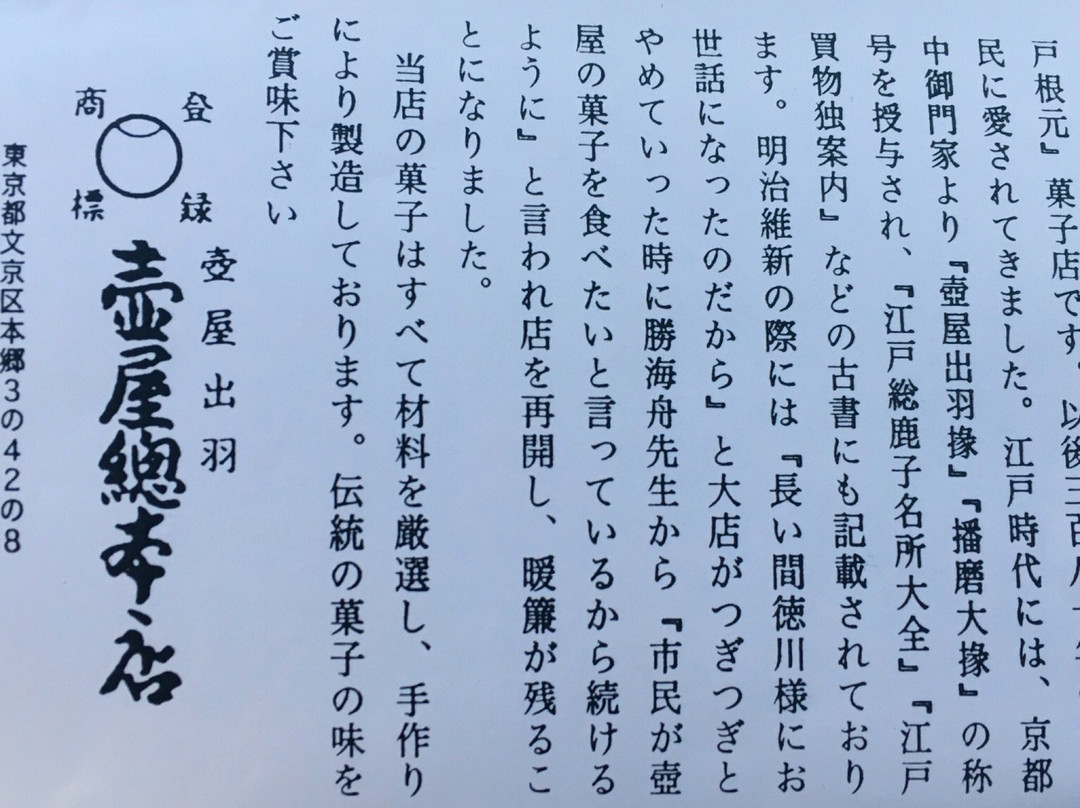 戸根元』菓子店です。以後三百
民に愛されてきました。江戸時代には、京都
中御門家より『壺屋出羽掾』『播磨大掾』の称
号を授与され、『江戸総鹿子名所大全』『江戸
買物独案内』などの古書にも記載されており
ます。明治維新の際には『長い間徳川様にお
世話になったのだから』と大店がつぎつぎと
やめていった時に勝海舟先生から『市民が壺
屋の菓子を食べたいと言っているから続ける
ように』と言われ店を再開し、暖簾が残るこ
とになりました。
当店の菓子はすべて材料を厳選し、手作り
により製造しております。伝統の菓子の味を
ご賞味下さい
登録
商標
壺屋出羽
壺屋總本店
東京都文京区本郷3の42の8